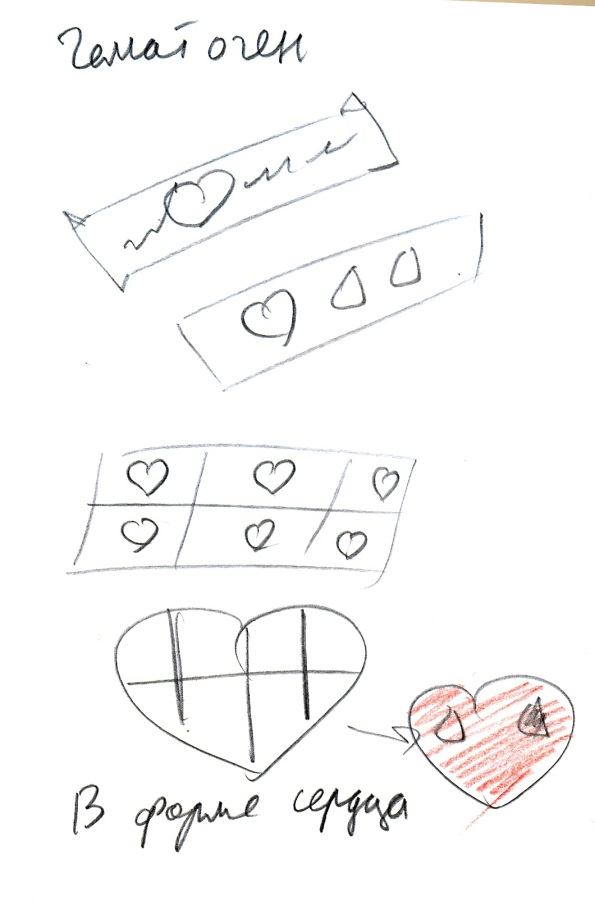 Гематоген
В форме сердца